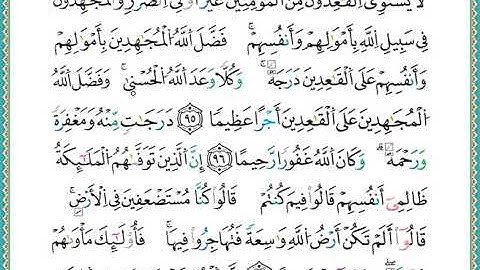 لَا يَسْتَوِى الْقَٰعِدُونَ مِنَ الْمُؤْمِنِينَ غَيْرُ أُولِى الضَّرَرِ وَالْمُجَٰهِدُونَ
فِى سَبِيلِ اللَّهِ بِأَمْوَٰلِهِمْ وَأَنفُسِهِمْ ۚ فَضَّلَ اللَّهُ الْمُجَٰهِدِينَ بِأَمْوَٰلِهِمْ
وَأَنفُسِهِمْ عَلَى الْقَٰعِدِينَ دَرَجَةً ۚ وَكُلًّا وَعَدَ اللَّهُ الْحُسْنَىٰ ۚ وَفَضَّلَ اللَّهُ
الْمُجَٰهِدِينَ عَلَى الْقَٰعِدِينَ أَجْرًا عَظِيمًا ﴿٩٥﴾ دَرَجَٰتٍ مِّنْهُ وَمَغْفِرَةً
وَرَحْمَةً ۚ وَكَانَ اللَّهُ غَفُورًا رَّحِيمًا ﴿٩٦﴾ إِنَّ الَّذِينَ تَوَفَّىٰهُمُ الْمَلَٰٓئِكَةُ
ظَالِمِىٓ أَنفُسِهِمْ قَالُوا فِيمَ كُنتُمْ ۖ قَالُوا كُنَّا مُسْتَضْعَفِينَ فِى الْأَرْضِ ۚ
قَالُوٓا أَلَمْ تَكُنْ أَرْضُ اللَّهِ وَٰسِعَةً فَتُهَاجِرُوا فِيهَا ۚ فَأُولَٰٓئِكَ مَأْوَىٰهُمْ